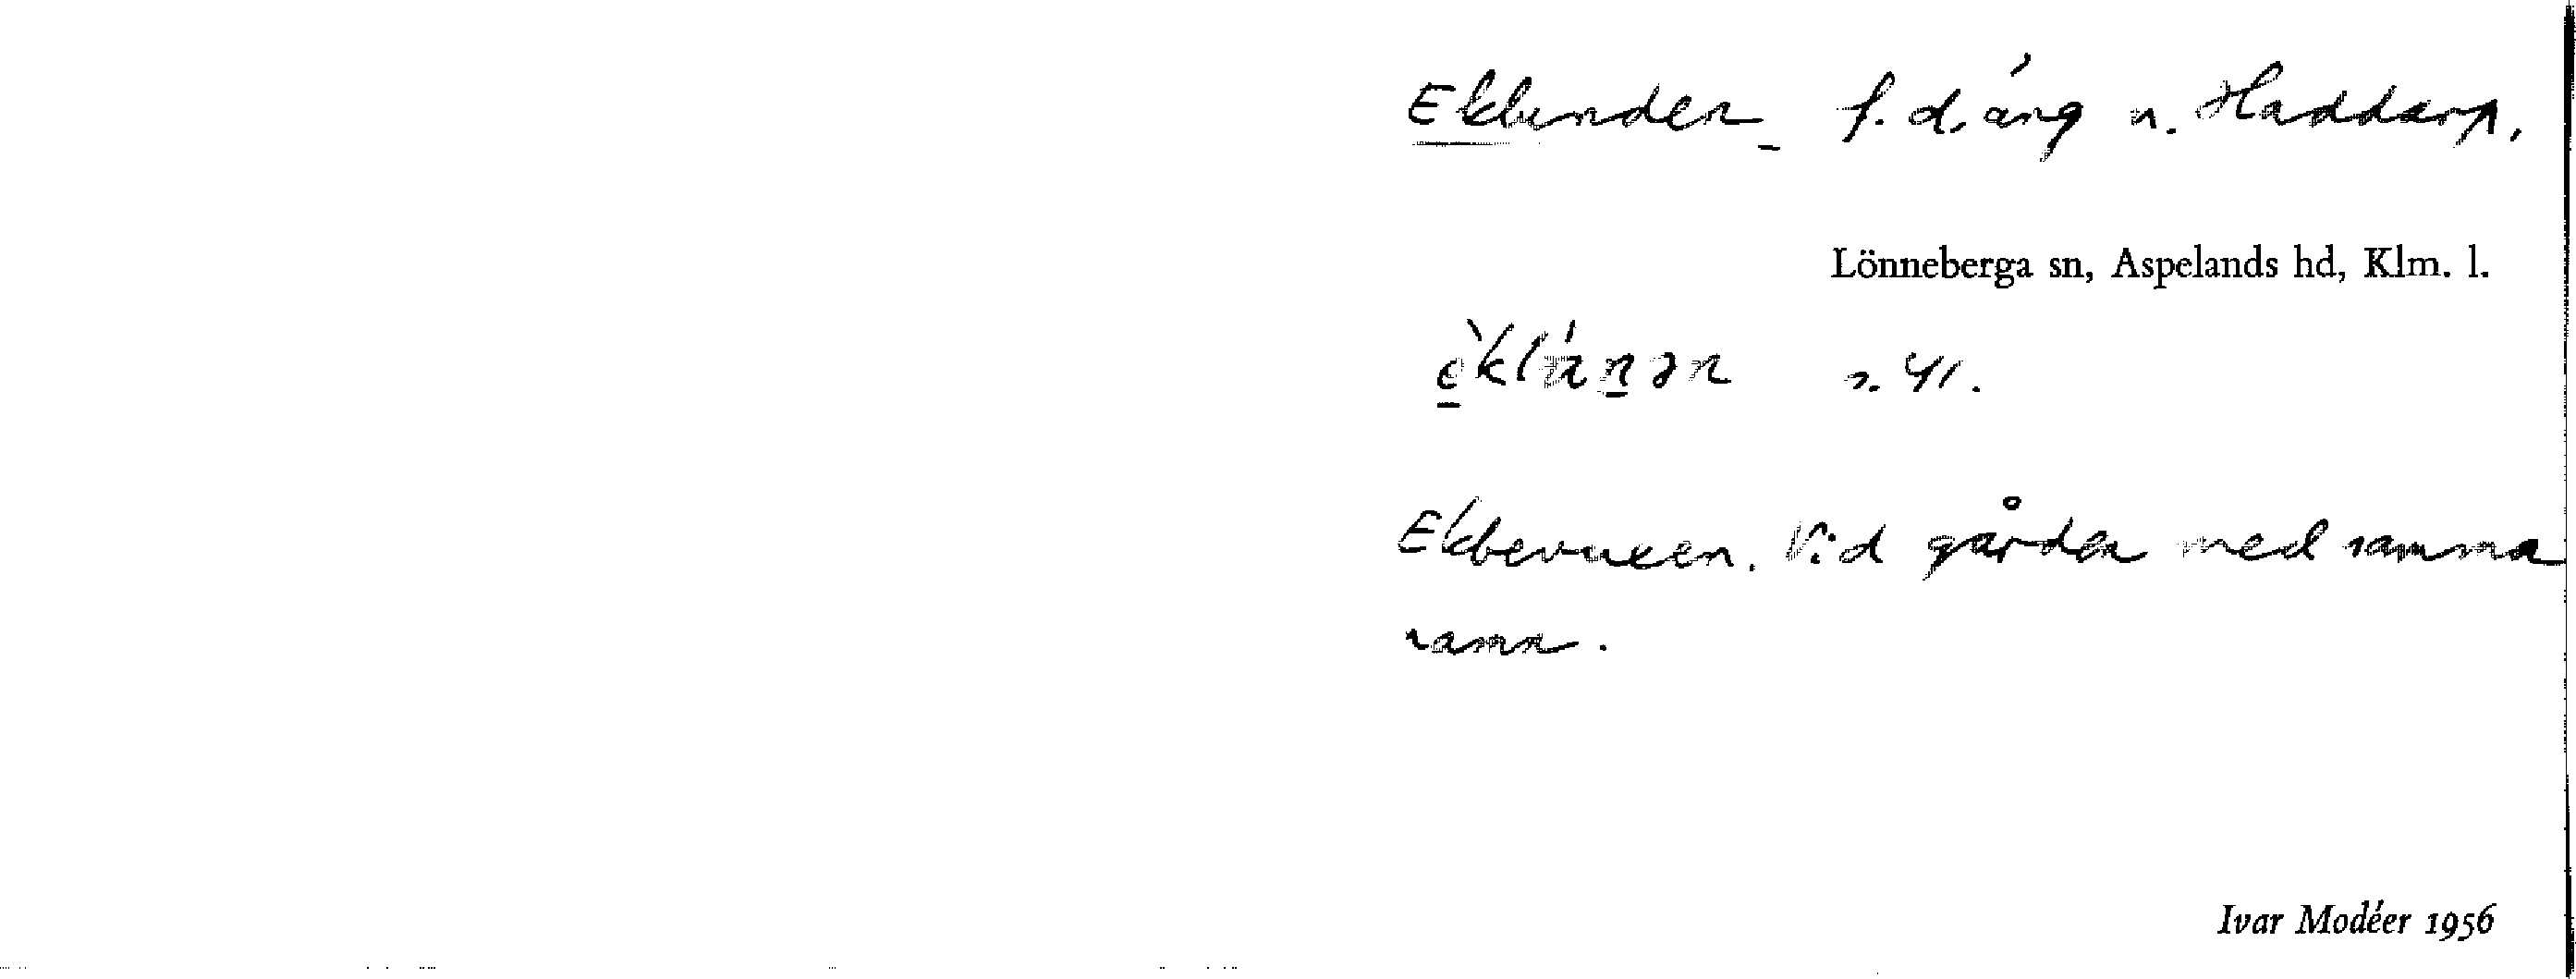 Eklunden f. d. äng n. Haddarp.
Lönneberga sn, Aspelands hd, Klm. l.
s. 41.
Ekbevuxen. Vid gården med samma
namn.
Ivar Modéer 1956